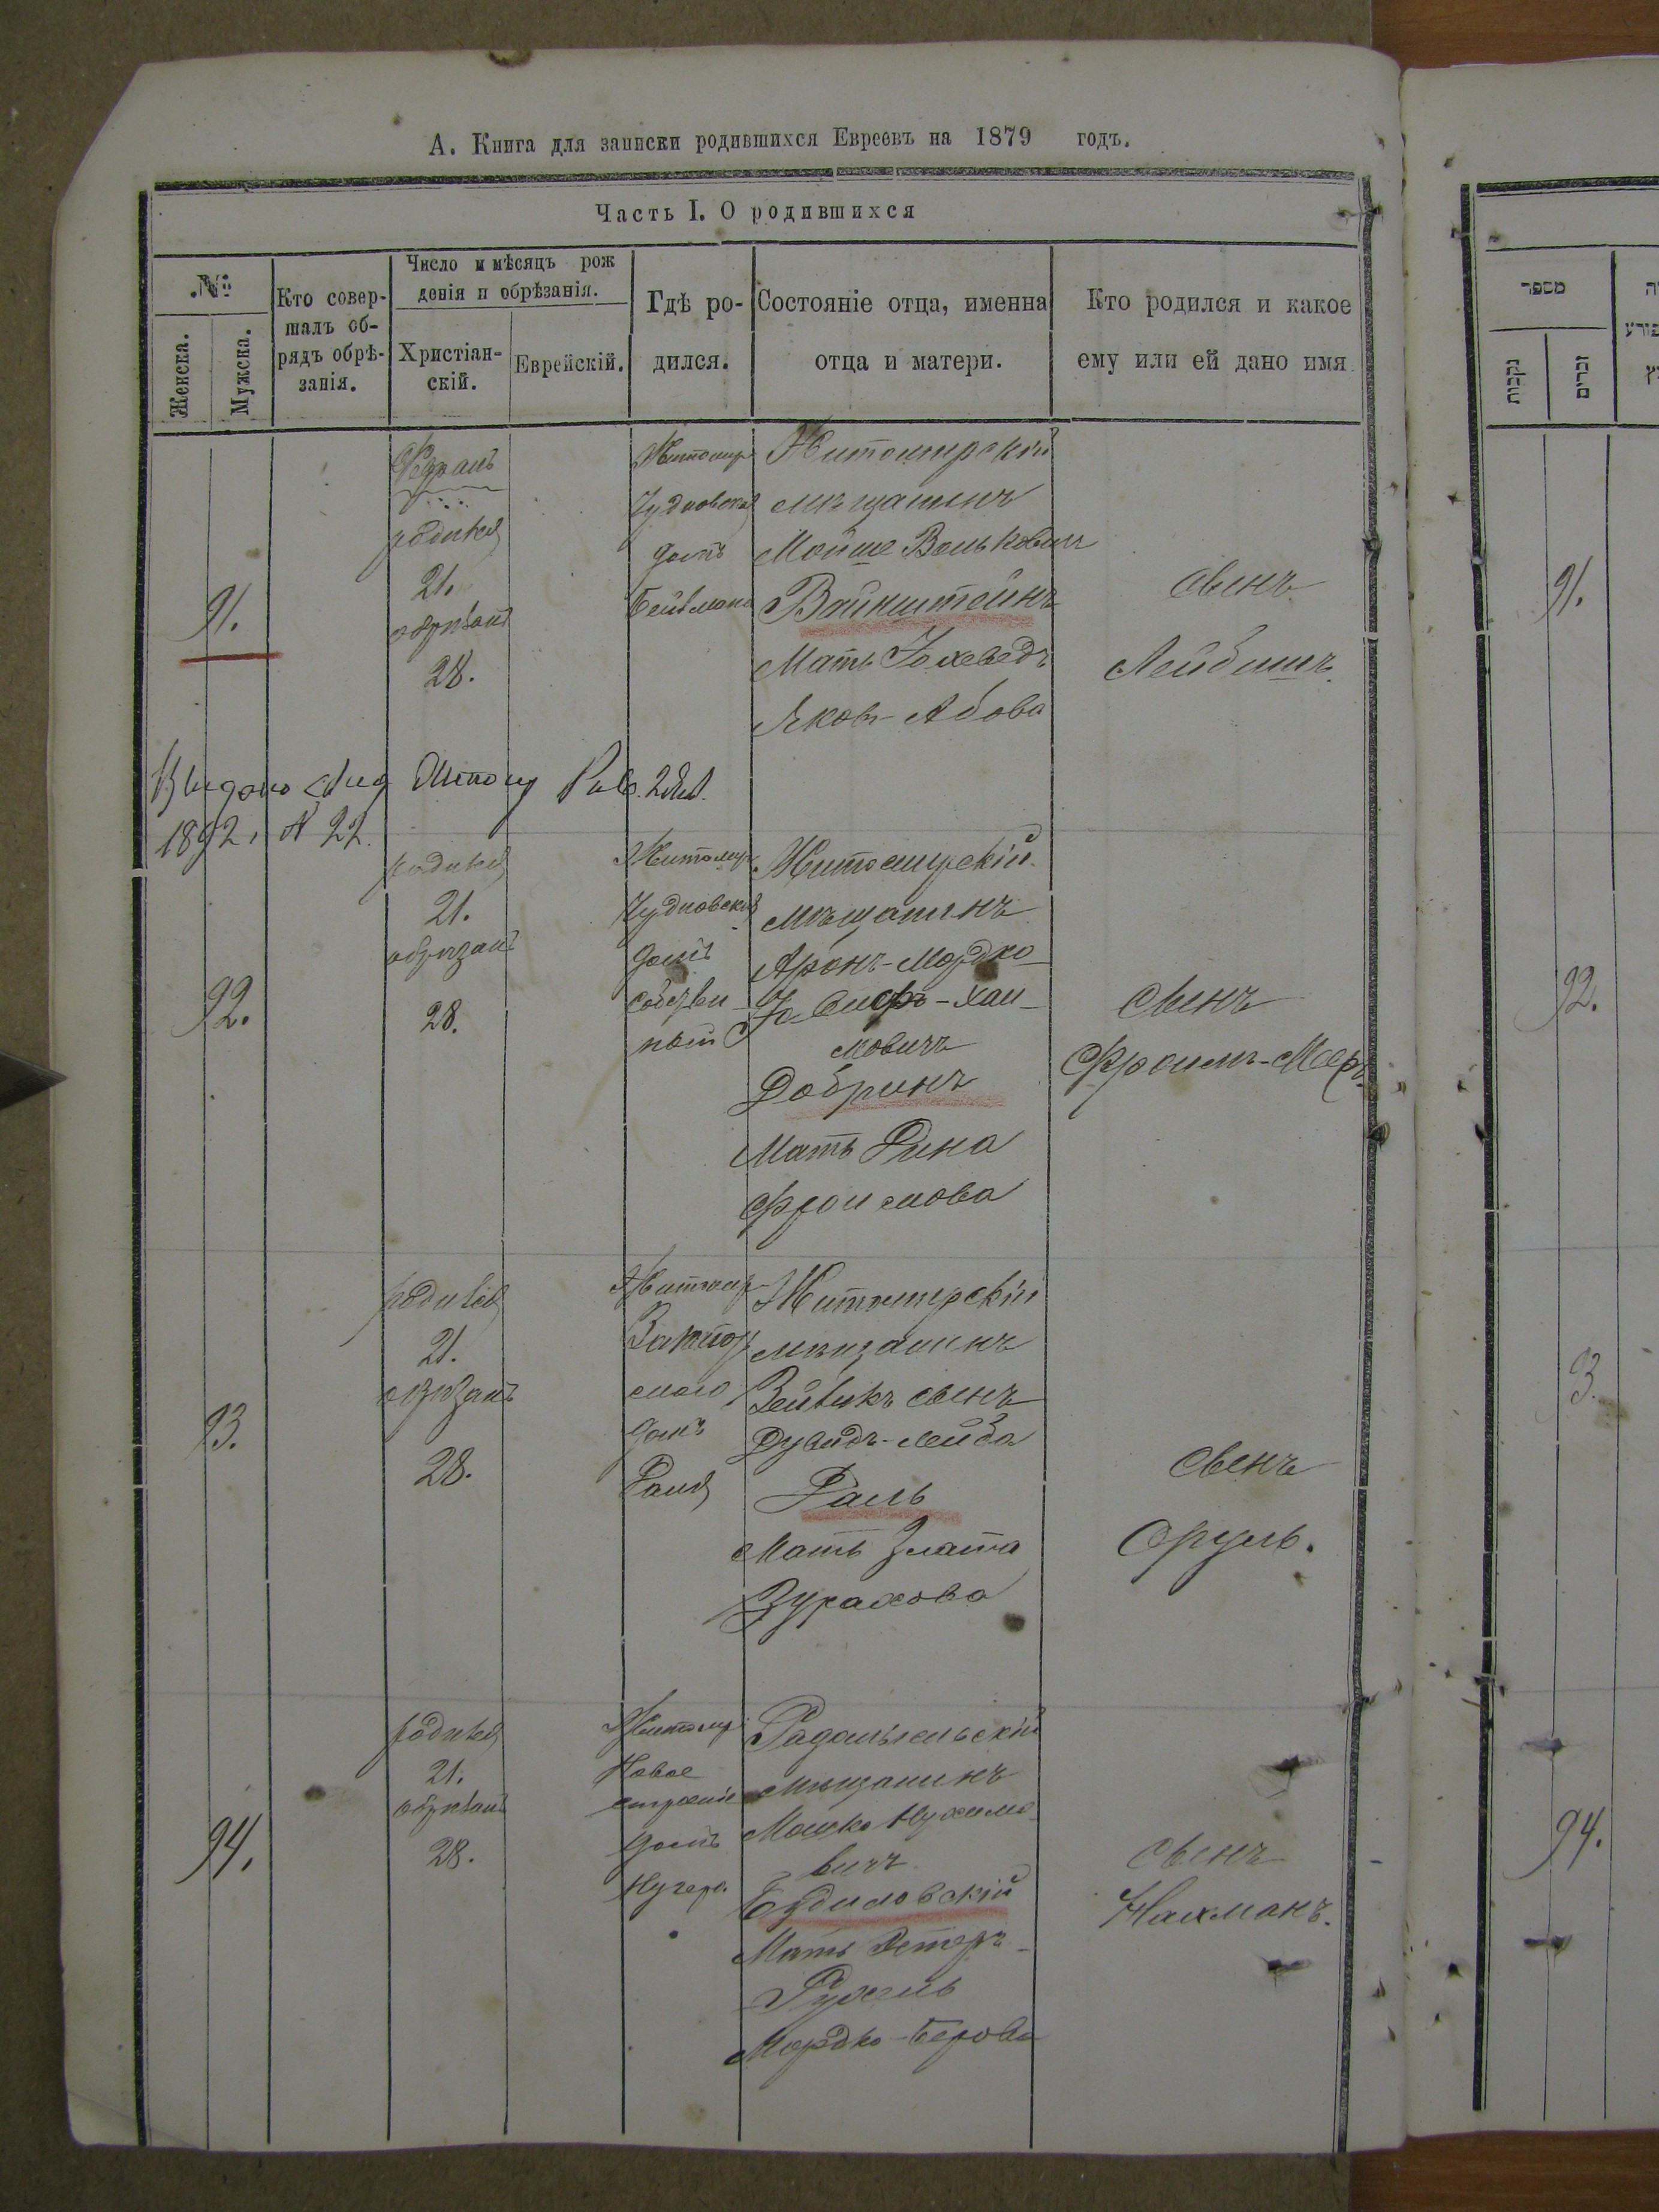 А. Книга для записки родившихся Евреевъ на 1879 годъ.
Часть I. О родившихся
№
Женска.
Мужска.
Кто совер-
шалъ об-
рядъ обрѣ-
занія.
Число и мѣсяцъ рож
денія и обрѣзанія.
Христіан-
скій.
Еврейскій.
Гдѣ ро-
дился.
Состояніе отца, именна
отца и матери.
Кто родился и какое
ему или ей дано имя
91.
родился
21.
обрѣзанъ
28.
Житомиръ
Чудновская
домъ
Житомирскій
мѣщанинъ
Мойше Вольковичъ
Вайнштейнъ
Мать Іохеведъ
Яковъ-Абова
сынъ
Лейбишъ.
Выдано
1892, № 22.
92.
родился
21.
обрѣзанъ
28.
Житомиръ
Чудновская
домъ
Житомирскій
мѣщанинъ
Аронъ-Мордко
Іосифъ-Хаи-
мовичъ
Добринъ
Мать Дина
Фроимова
сынъ
Фроимъ-Мееръ
93.
родился
21.
обрѣзанъ
28.
Житомиръ
домъ
Житомирскій
мѣщанинъ
Зейликъ сынъ
Дувидъ-Лейба
Раль
Мать Злата
Зурахова
сынъ
Сруль.
94.
родился
21.
обрѣзанъ
28.
Житомиръ
Новое
строеніе
домъ
Радомысльскій
мѣщанинъ
Мошко Нухимо-
вичъ
Будиловскій
Мать Эстеръ-
Рухель
Мордко-Берова
сынъ
Нахманъ.
מספר
נקבות
זכרים
91.
92.
93.
94.